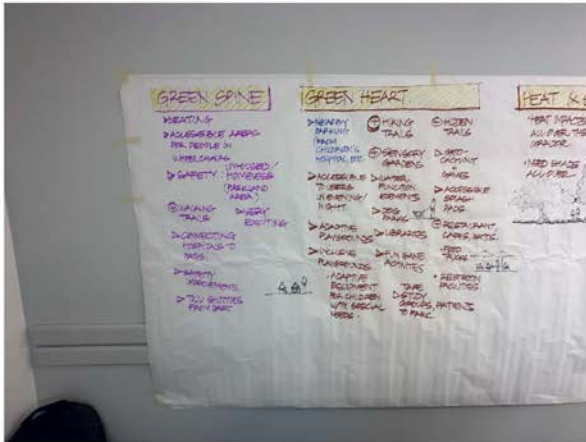 GREEN SPINE
▷SEATING
▷ACCESSIBLE AREAS
FOR PEOPLE IN
WHEELCHAIRS
▷SAFETY: UNHOUSED/
HOMELESS
(PARKLAND
AREA)
⊕ WALKING
TRAILS
▷VERY
EXCITING
▷CONNECTING
HOSPITALS TO
▷SAFETY
IMPROVEMENTS
FROM DART
GREEN HEART
▷NEARBY
PARKING
FROM
CHILDREN'S
HOSPITAL ETC.
▷ACCESSIBLE
TO USERS
IN EVENING/
NIGHT
▷ADAPTIVE
PLAYGROUNDS
▷INCLUSIVE
PLAYGROUNDS
- ADAPTIVE
EQUIPMENT
FOR CHILDREN
WITH SPECIAL
NEEDS.
⊕ HIKING
TRAILS
⊕ SENSORY
GARDENS
▷WATER
FUNCTION
ELEMENTS
▷DOG
PARKS
▷LIBRARIES
▷FUN GAME
ACTIVITIES
TAKE
▷STUDY
GROUPS, PATIENTS
TO PARK.
⊖ HIDDEN
TRAILS
▷GEO-
CACHING
GAMES
▷ACCESSIBLE
SPLASH
PADS.
⊕ RESTAURANT,
CAFES, EATS.
FOOD
TRUCKS
• RESTROOM
FACILITIES
HEAT
HEAT IMPACTS
ALL OVER THE
CORRIDOR.
NEED SHADE
ALL OVER